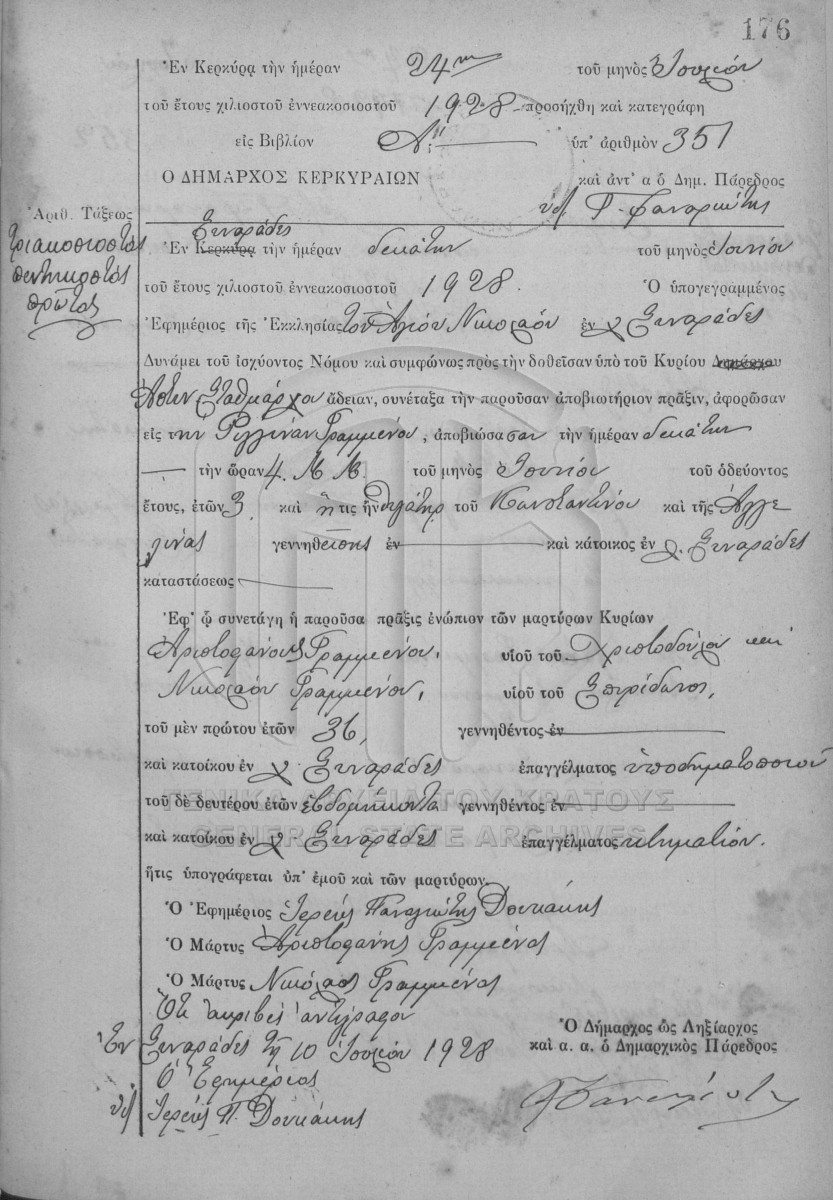 176
Ἐν Κερκύρᾳ τὴν ἡμέραν 24ην τοῦ μηνὸς Ἰουλίου
τοῦ ἔτους χιλιοστοῦ ἐννεακοσιοστοῦ 1928 προσήχθη καὶ κατεγράφη
εἰς Βιβλίον Α: ὑπ' ἀριθμὸν 351
Ο ΔΗΜΑΡΧΟΣ ΚΕΡΚΥΡΑΙΩΝ καὶ ἀντ' α ὁ Δημ. Πάρεδρος
Ἀριθ. Τάξεως
Τριακοσιοστός
πεντηκοστός
πρῶτος
Σιναράδες
Ἐν Κερκύρᾳ τὴν ἡμέραν δεκάτην τοῦ μηνὸς Ἰουνίου
τοῦ ἔτους χιλιοστοῦ ἐννεακοσιοστοῦ 1928. Ὁ ὑπογεγραμμένος
Ἐφημέριος τῆς Ἐκκλησίας τοῦ Ἁγίου Νικολάου ἐν χ Σιναράδες
Δυνάμει τοῦ ἰσχύοντος Νόμου καὶ συμφώνως πρὸς τὴν δοθεῖσαν ὑπὸ τοῦ Κυρίου Δημάρχου
Ἀστυν Σταθμάρχου ἄδειαν, συνέταξα τὴν παροῦσαν ἀποβιωτήριον πρᾶξιν, ἀφορῶσαν
εἰς τὴν Ρεγγίναν Γραμμένου, ἀποβιώσασαν τὴν ἡμέραν δεκάτην
τὴν ὥραν 4. Μ Μ. τοῦ μηνὸς Ἰουνίου τοῦ ὁδεύοντος
ἔτους, ἐτῶν 3 καὶ ἥτις ἦν θυγάτηρ τοῦ Κωνσταντίνου καὶ τῆς Ἀγγε
λινας γεννηθείσης ἐν καὶ κάτοικος ἐν χ. Σιναράδες
καταστάσεως
Ἐφ' ᾧ συνετάγη ἡ παροῦσα πρᾶξις ἐνώπιον τῶν μαρτύρων Κυρίων
Ἀριστοφάνους Γραμμένου, υἱοῦ τοῦ Χριστοδούλου καὶ
Νικολάου Γραμμένου, υἱοῦ τοῦ Σπυρίδωνος,
τοῦ μὲν πρώτου ἐτῶν 36, γεννηθέντος ἐν
καὶ κατοίκου ἐν χ Σιναράδες ἐπαγγέλματος ὑποδηματοποιοῦ
τοῦ δὲ δευτέρου ἐτῶν ἑβδομήκοντα γεννηθέντος ἐν
ΓΕΝΙΚΑ ΑΡΧΕΙΑ ΤΟΥ ΚΡΑΤΟΥΣ
GENERAL STATE ARCHIVES
καὶ κατοίκου ἐν χ. Σιναράδες ἐπαγγέλματος κτηματίου.
ἥτις ὑπογράφεται ὑπ' ἐμοῦ καὶ τῶν μαρτύρων.
Ὁ Ἐφημέριος Ἱερεύς Παναγιώτης Δουκάκης
Ὁ Μάρτυς Ἀριστοφάνης Γραμμένος
Ὁ Μάρτυς Νικόλαος Γραμμένος
Ὅτι ἀκριβές ἀντίγραφον
Ἐν Σιναράδες τῇ 10 Ἰουλίου 1928
Ὁ Ἐφημέριος
Ἱερεύς Π. Δουκάκης
Ὁ Δήμαρχος ὡς Ληξίαρχος
καὶ α. α. ὁ Δημαρχικὸς Πάρεδρος